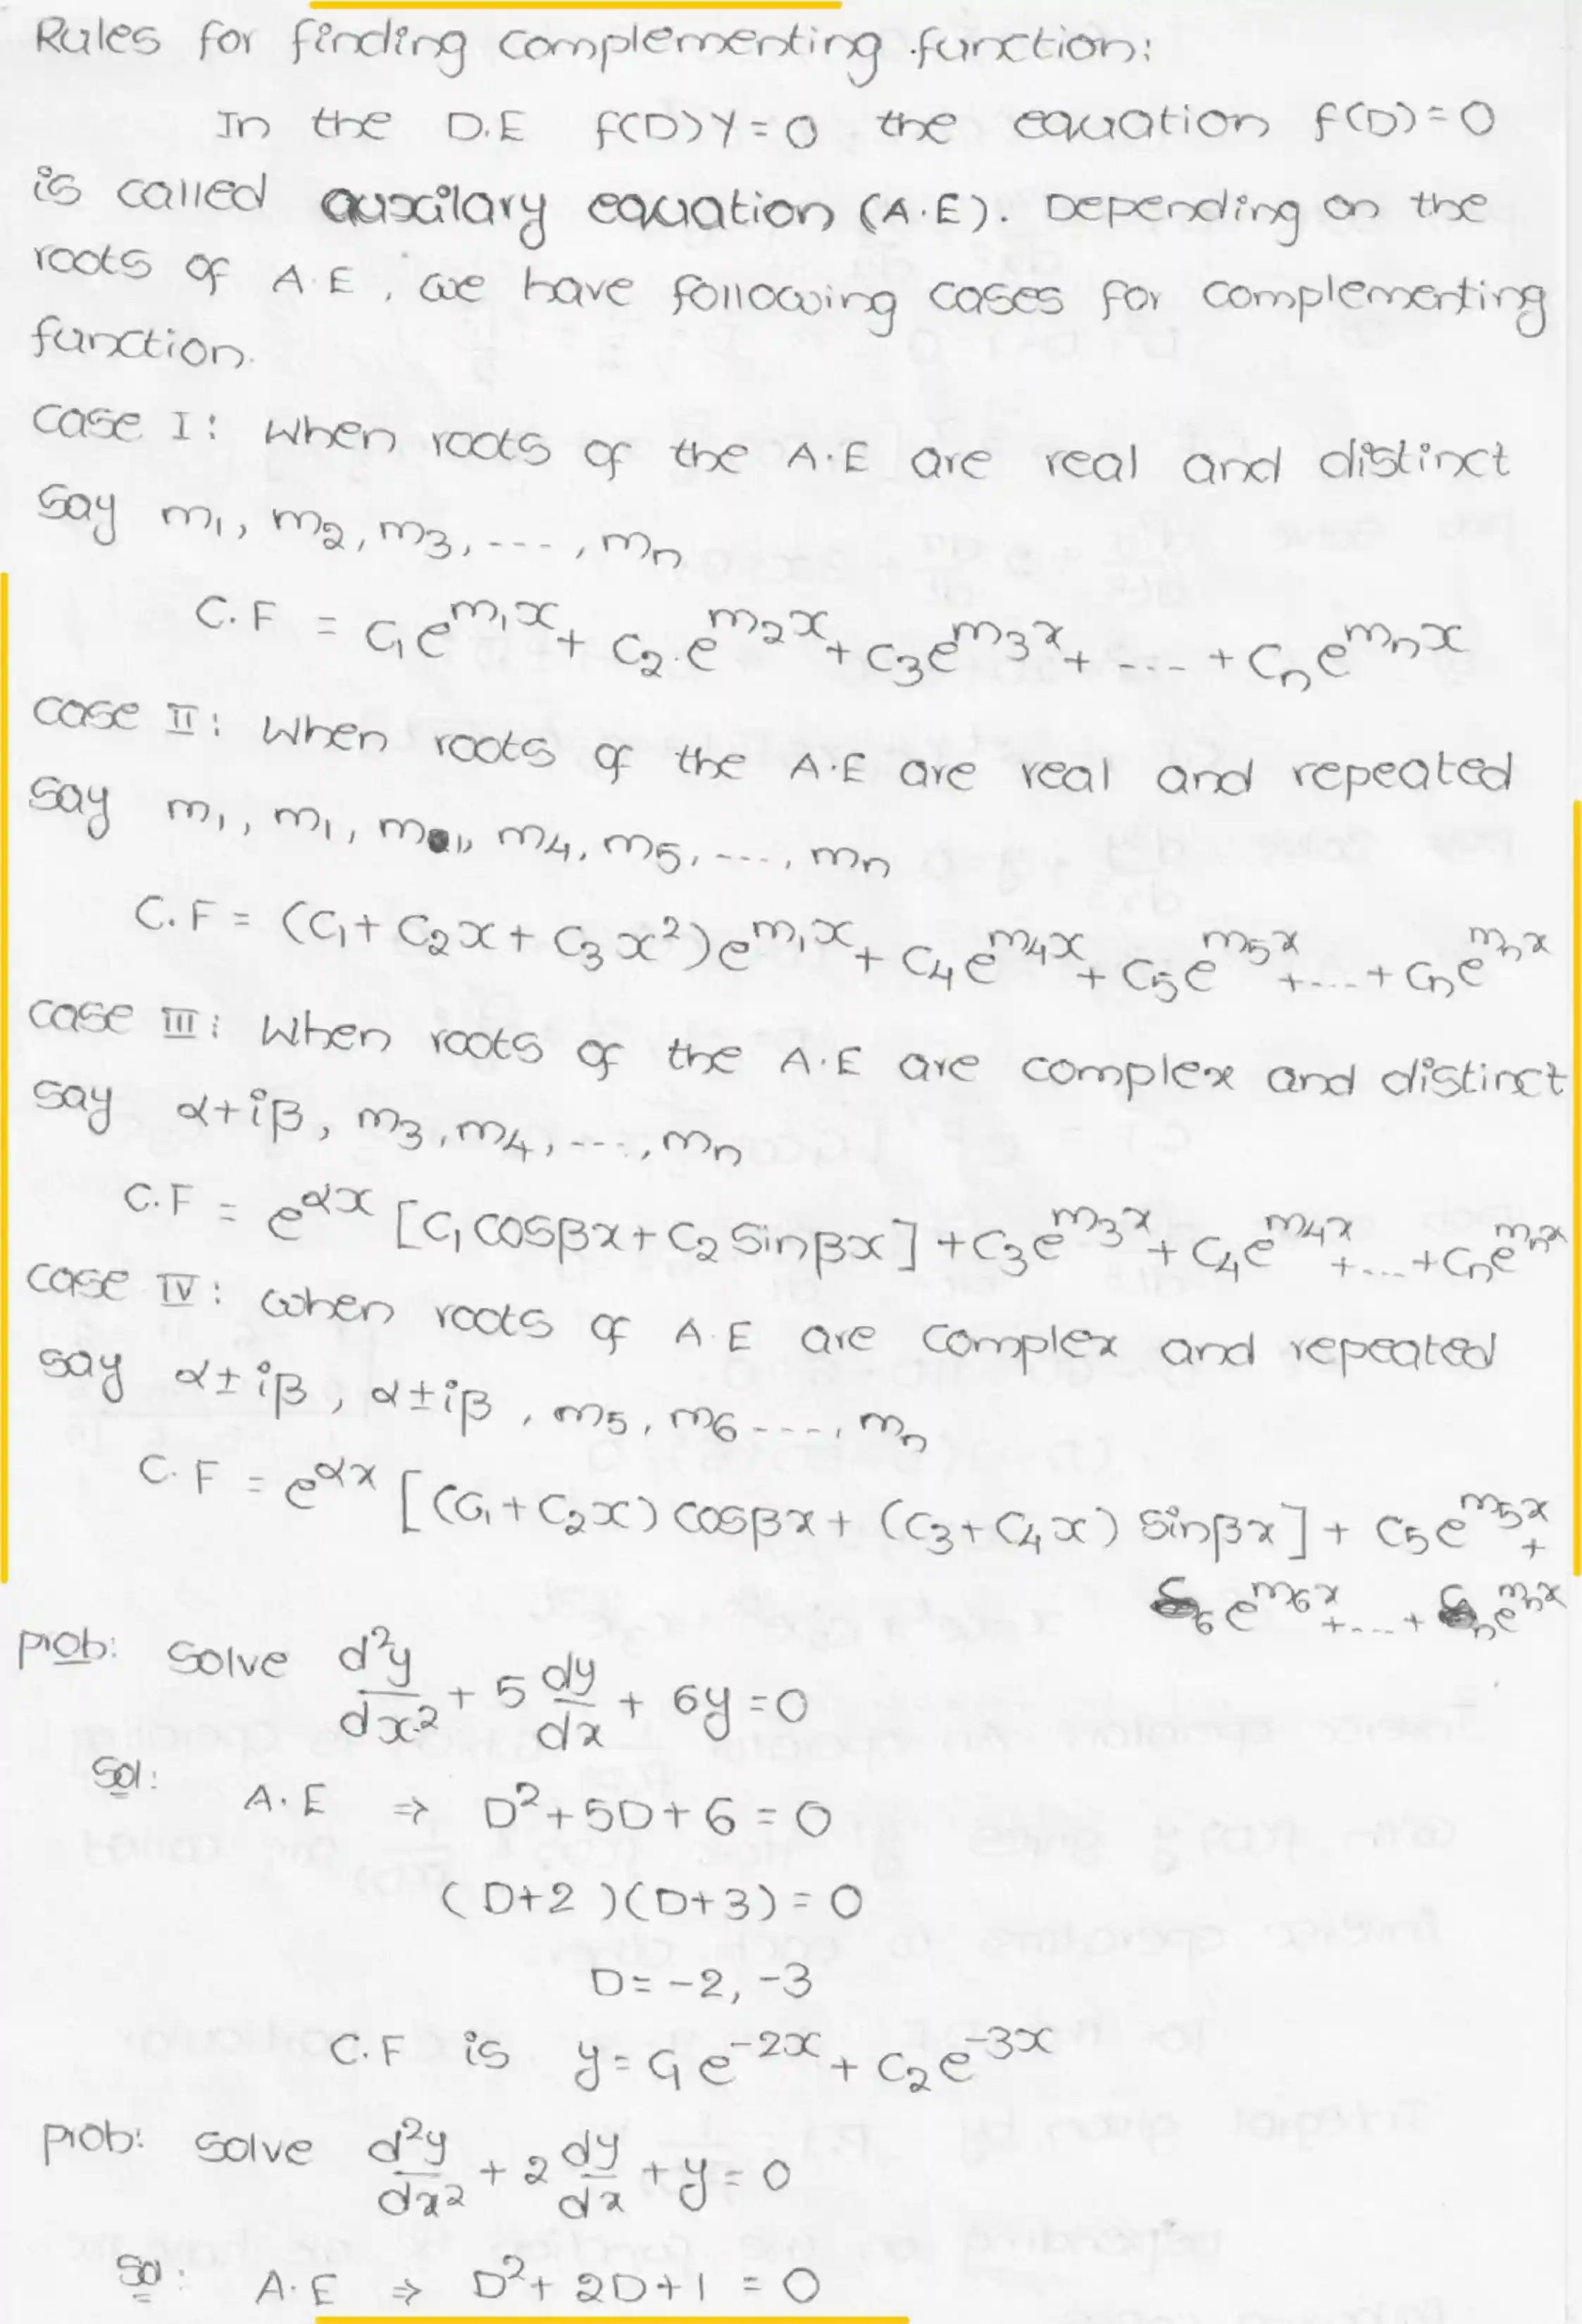 Rules for finding complementing function:
In the D.E f(D)Y=0 the equation f(D)=0
is called auxcilary equation (A.E). Depending on the
roots of A.E, we have following cases for complementing
function.
case I: When roots of the A.E are real and distinct
say m₁, m₂, m₃, ---, mₙ
C.F = C₁e^{m₁x} + C₂.e^{m₂x} + C₃e^{m₃x} + ---- + Cₙe^{mₙx}
case II: When roots of the A.E are real and repeated
say m₁, m₁, m₁, m₄, m₅, ---, mₙ
C.F = (C₁+C₂x+C₃x²)e^{m₁x} + C₄e^{m₄x} + C₅e^{m₅x} +---+ Cₙe^{mₙx}
case III: When roots of the A.E are complex and distinct
say α+iβ, m₃, m₄, ---, mₙ
C.F = e^{αx} [C₁cosβx+C₂ sinβx] + C₃e^{m₃x} + C₄e^{m₄x} +---+ Cₙe^{mₙx}
case IV: when roots of A.E are complex and repeated
say α±iβ, α±iβ, m₅, m₆ ---, mₙ
C.F = e^{αx} [(C₁+C₂x) cosβx + (C₃+C₄x) sinβx] + C₅e^{m₅x} +
C₆e^{m₆x} +---+ Cₙe^{mₙx}
prob: solve d²y/dx² + 5 dy/dx + 6y = 0
Sol: A.E ⇒ D²+5D+6 = 0
(D+2)(D+3) = 0
D = -2, -3
C.F is y = C₁e^{-2x} + C₂e^{-3x}
prob: solve d²y/dx² + 2 dy/dx + y = 0
Sol: A.E ⇒ D²+2D+1 = 0